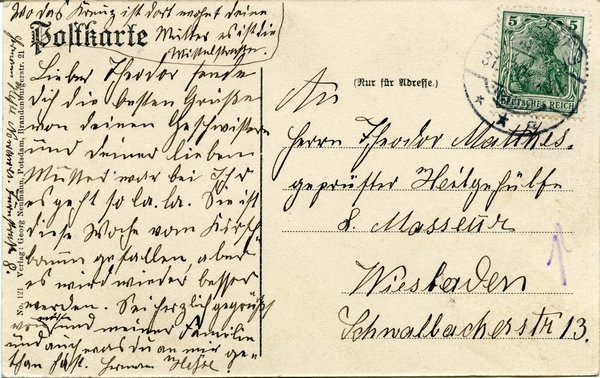 wo das Kreuz ist dort wohnt deine
Mutter es ist die
Mittelstrasse.
Postkarte
Lieber Theodor sende
dir die besten Grüße
von deinen Geschwistern
und deiner lieben
Mutter war bei Ihr
es geht so la. la. Sie ist
diese Woche vom Kirsch
baum gefallen, aber
es wird wieder besser
werden. Sei herzlich gegrüßt
von und meiner Familie
und auch was du an mir ge-
than hast. Hermann Hesse.
No. 121 Verlag: Georg Neumann, Potsdam, Brandenburgerstr. 21
(Nur für Adresse.)
An
Herrn Theodor Matthes.
geprüfter Heilgehülfe
& Masseur
Wiesbaden
Schwalbacherstr 13.
5 5
DEUTSCHES REICH